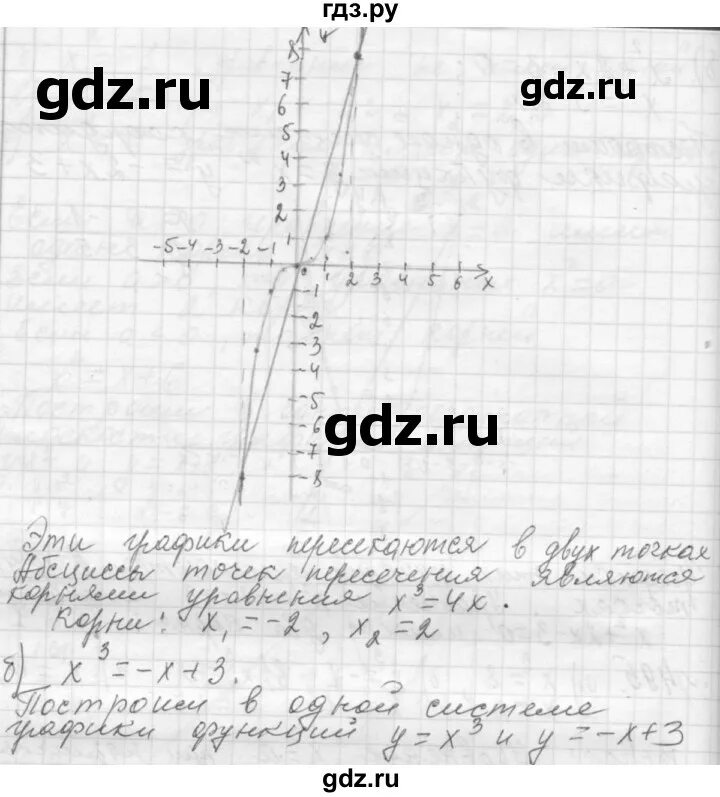 гдз.ру
gdz.ru
gdz.ru
8
7
6
5
4
3
2
1
-5 -4 -3 -2 -1 0 1 2 3 4 5 6 x
-1
-2
-3
-4
-5
-6
-7
-8
gdz.ru
Эти графики пересекаются в двух точках
Абсциссы точек пересечения являются
корнями уравнения x³=4x.
Корни: x₁=-2, x₂=2
б) x³=-x+3.
Построим в одной системе
графики функций y=x³ и y=-x+3
gdz.ru